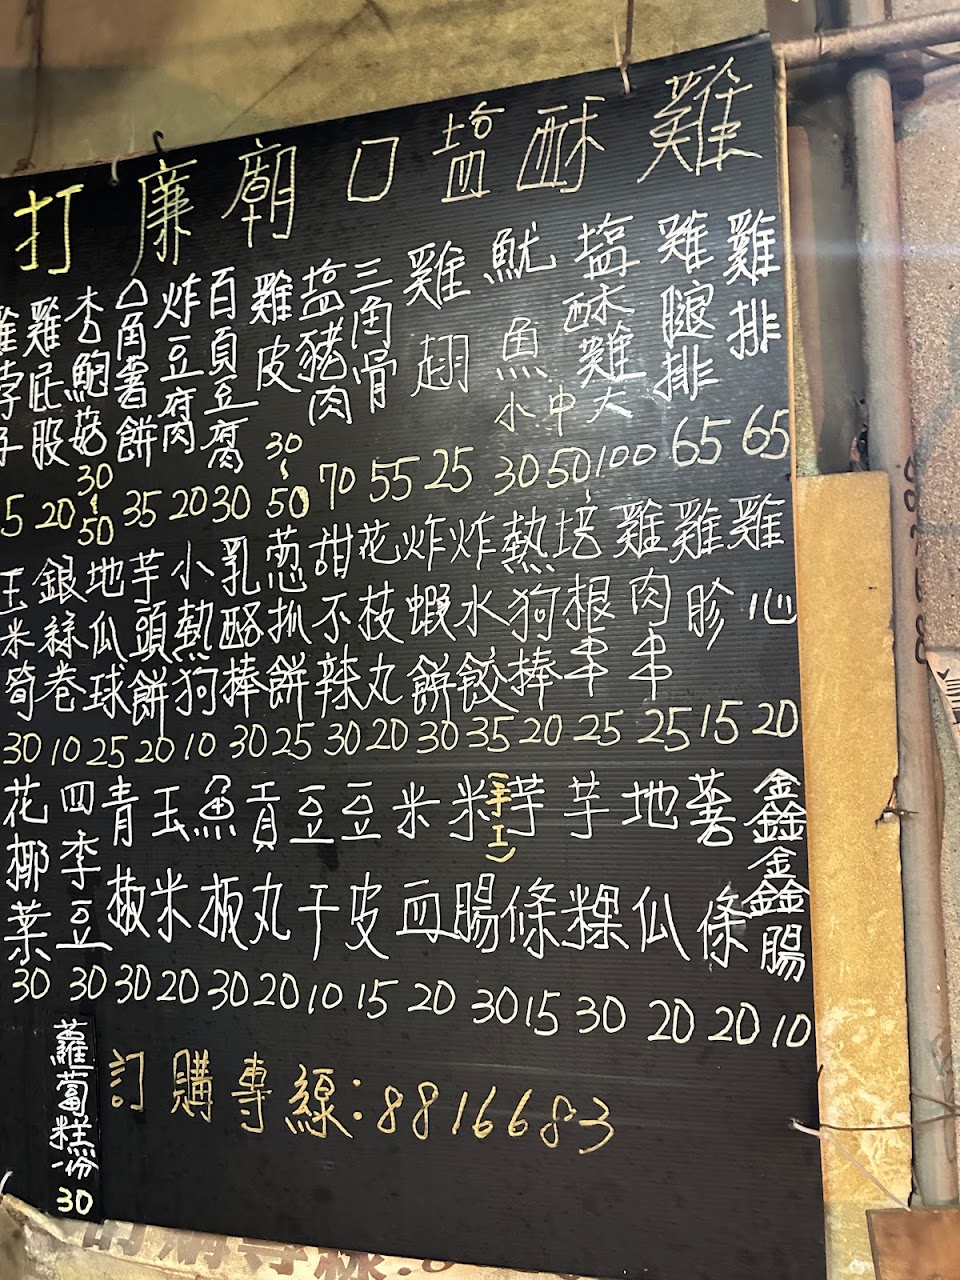 打廉廟口塩酥雞
雞排 65
雞腿排 65
塩酥雞
魷魚
小30 中50 大100
雞翅 25
三角骨 55
塩豬肉 70
雞皮 30~50
百頁豆腐 30
炸豆腐 20
△角薯餅 35
杏鮑菇 30~50
雞屁股 20
雞脖子 5
雞心 20
雞胗 15
雞肉串 25
培根串 25
熱狗棒 20
炸水餃 35
炸蝦餅 30
花枝丸 20
甜不辣 30
葱抓餅 25
乳酪棒 30
小熱狗 10
芋頭餅 20
地瓜球 25
銀絲卷 10
玉米筍 30
鑫鑫腸 10
薯條 20
地瓜 20
芋粿 30
芋條 15
(手工)米腸 30
米血 20
豆皮 15
豆干 10
貢丸 20
魚板 30
玉米 20
青椒 30
四季豆 30
花椰菜 30
蘿蔔糕一份30
訂購專線:8816683